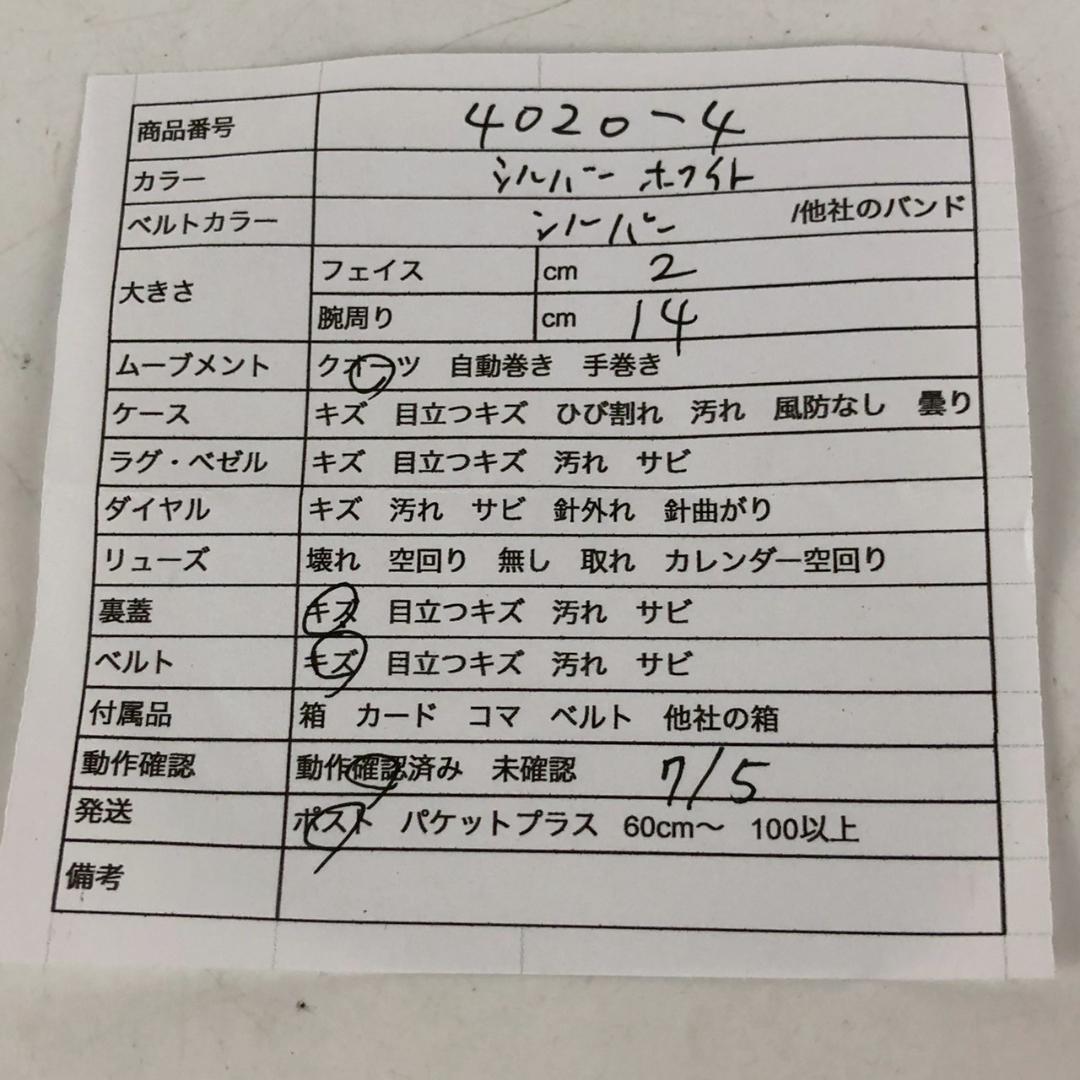 商品番号 4020-4
カラー シルバー ホワイト
ベルトカラー シルバー /他社のバンド
大きさ フェイス cm 2
腕周り cm 14
ムーブメント クオーツ 自動巻き 手巻き
ケース キズ 目立つキズ ひび割れ 汚れ 風防なし 曇り
ラグ・ベゼル キズ 目立つキズ 汚れ サビ
ダイヤル キズ 汚れ サビ 針外れ 針曲がり
リューズ 壊れ 空回り 無し 取れ カレンダー空回り
裏蓋 キズ 目立つキズ 汚れ サビ
ベルト キズ 目立つキズ 汚れ サビ
付属品 箱 カード コマ ベルト 他社の箱
動作確認 動作確認済み 未確認 7/5
発送 ポスト パケットプラス 60cm〜 100以上
備考